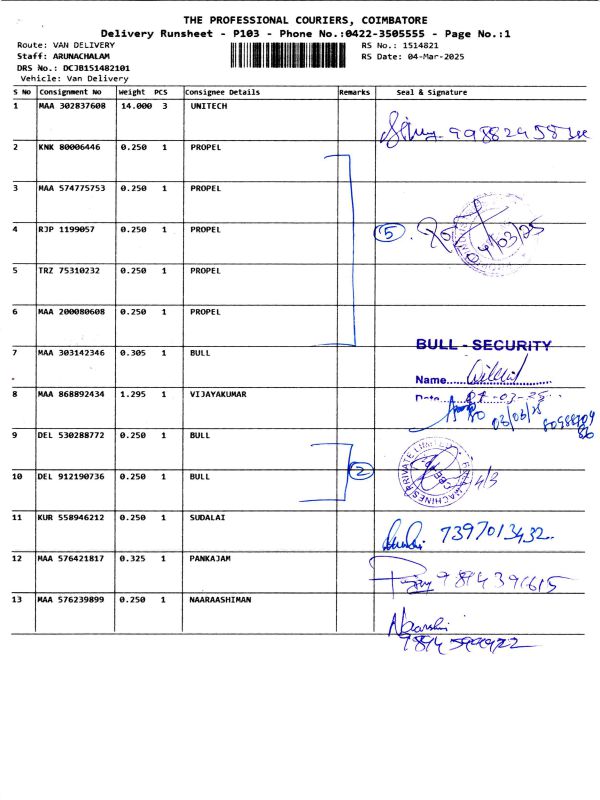 THE PROFESSIONAL COURIERS, COIMBATORE
Delivery Runsheet - P103 - Phone No.:0422-3505555 - Page No.:1
Route: VAN DELIVERY RS No.: 1514821
Staff: ARUNACHALAM RS Date: 04-Mar-2025
DRS No.: DCJB151482101
Vehicle: Van Delivery
S No Consignment No Weight PCS Consignee Details Remarks Seal & Signature
1 MAA 302837608 14.000 3 UNITECH
2 KNK 80006446 0.250 1 PROPEL
3 MAA 574775753 0.250 1 PROPEL
4 RJP 1199057 0.250 1 PROPEL 5 04/03/25
5 TRZ 75310232 0.250 1 PROPEL
6 MAA 200080608 0.250 1 PROPEL
BULL - SECURITY
7 MAA 303142346 0.305 1 BULL
Name
8 MAA 868892434 1.295 1 VIJAYAKUMAR
Date
9 DEL 530288772 0.250 1 BULL 2
10 DEL 912190736 0.250 1 BULL 4/3
11 KUR 558946212 0.250 1 SUDALAI 7397013432
12 MAA 576421817 0.325 1 PANKAJAM
13 MAA 576239899 0.250 1 NAARAASHIMAN